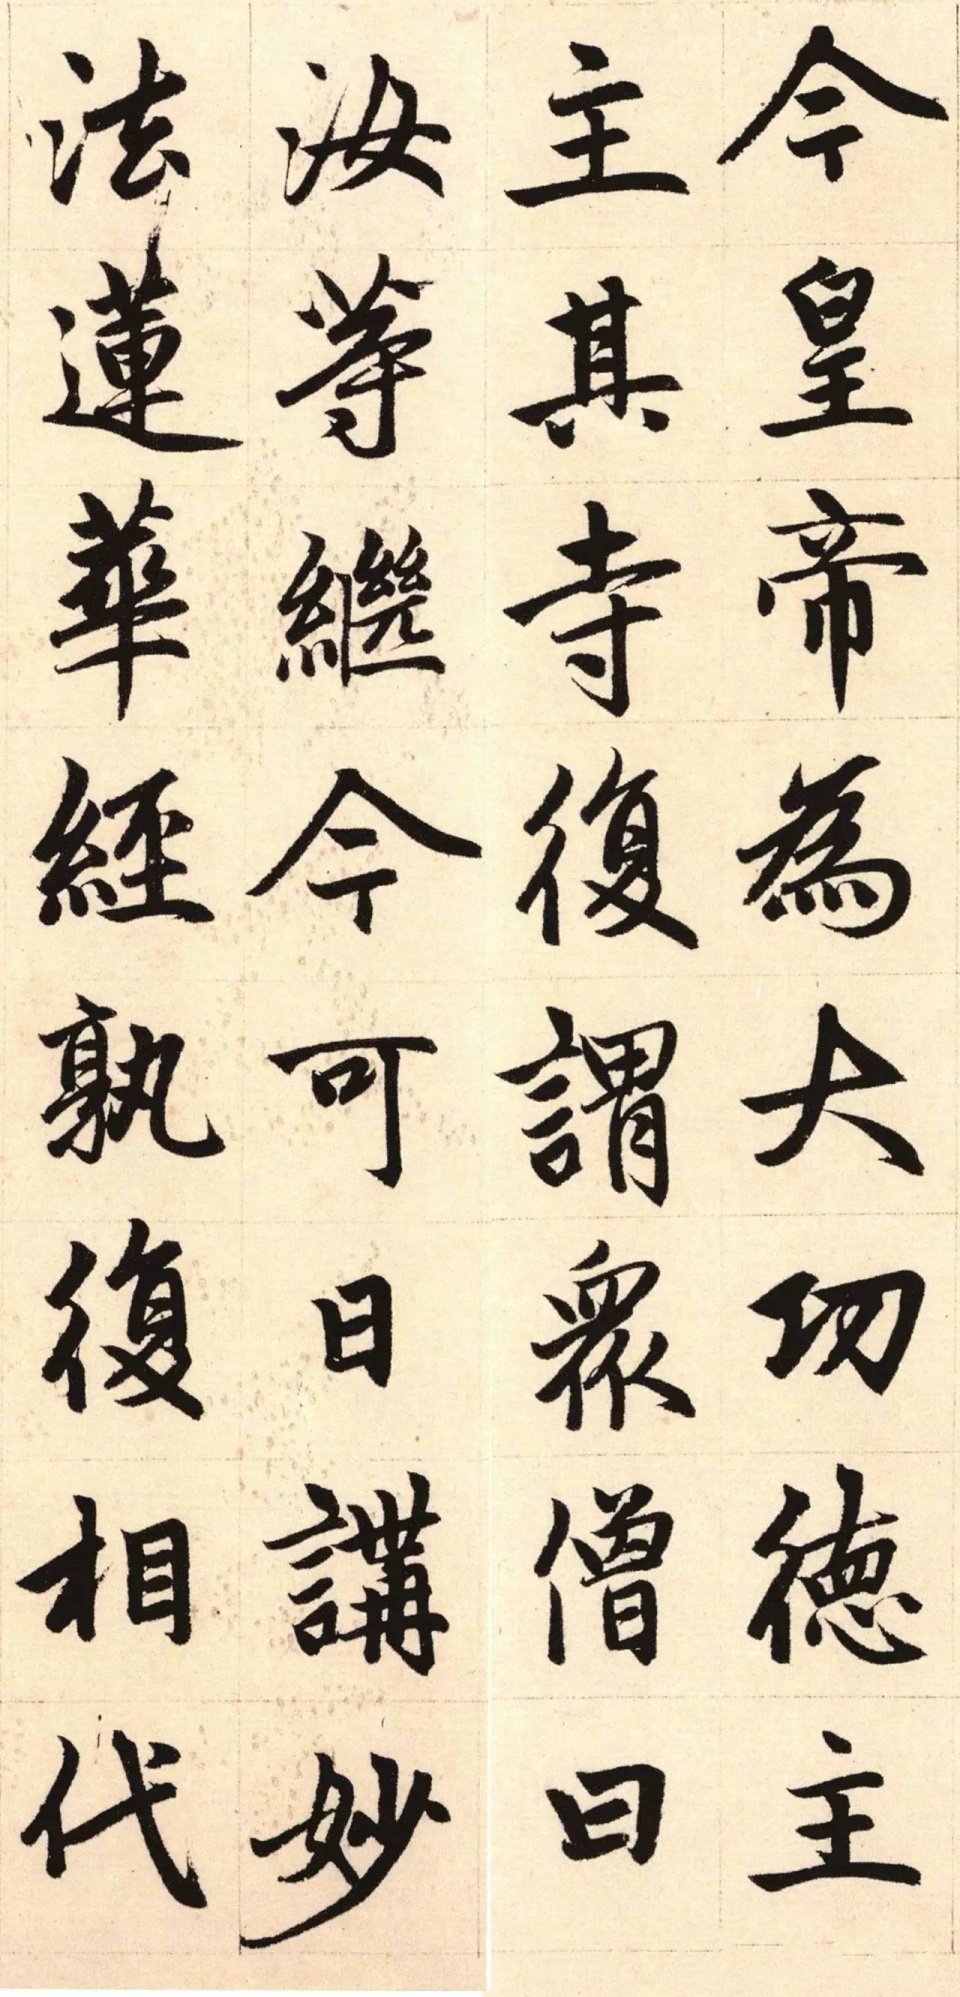 今皇帝為大功德主
主其寺復謂眾僧曰
汝等繼今可日講妙
法蓮華經孰復相代